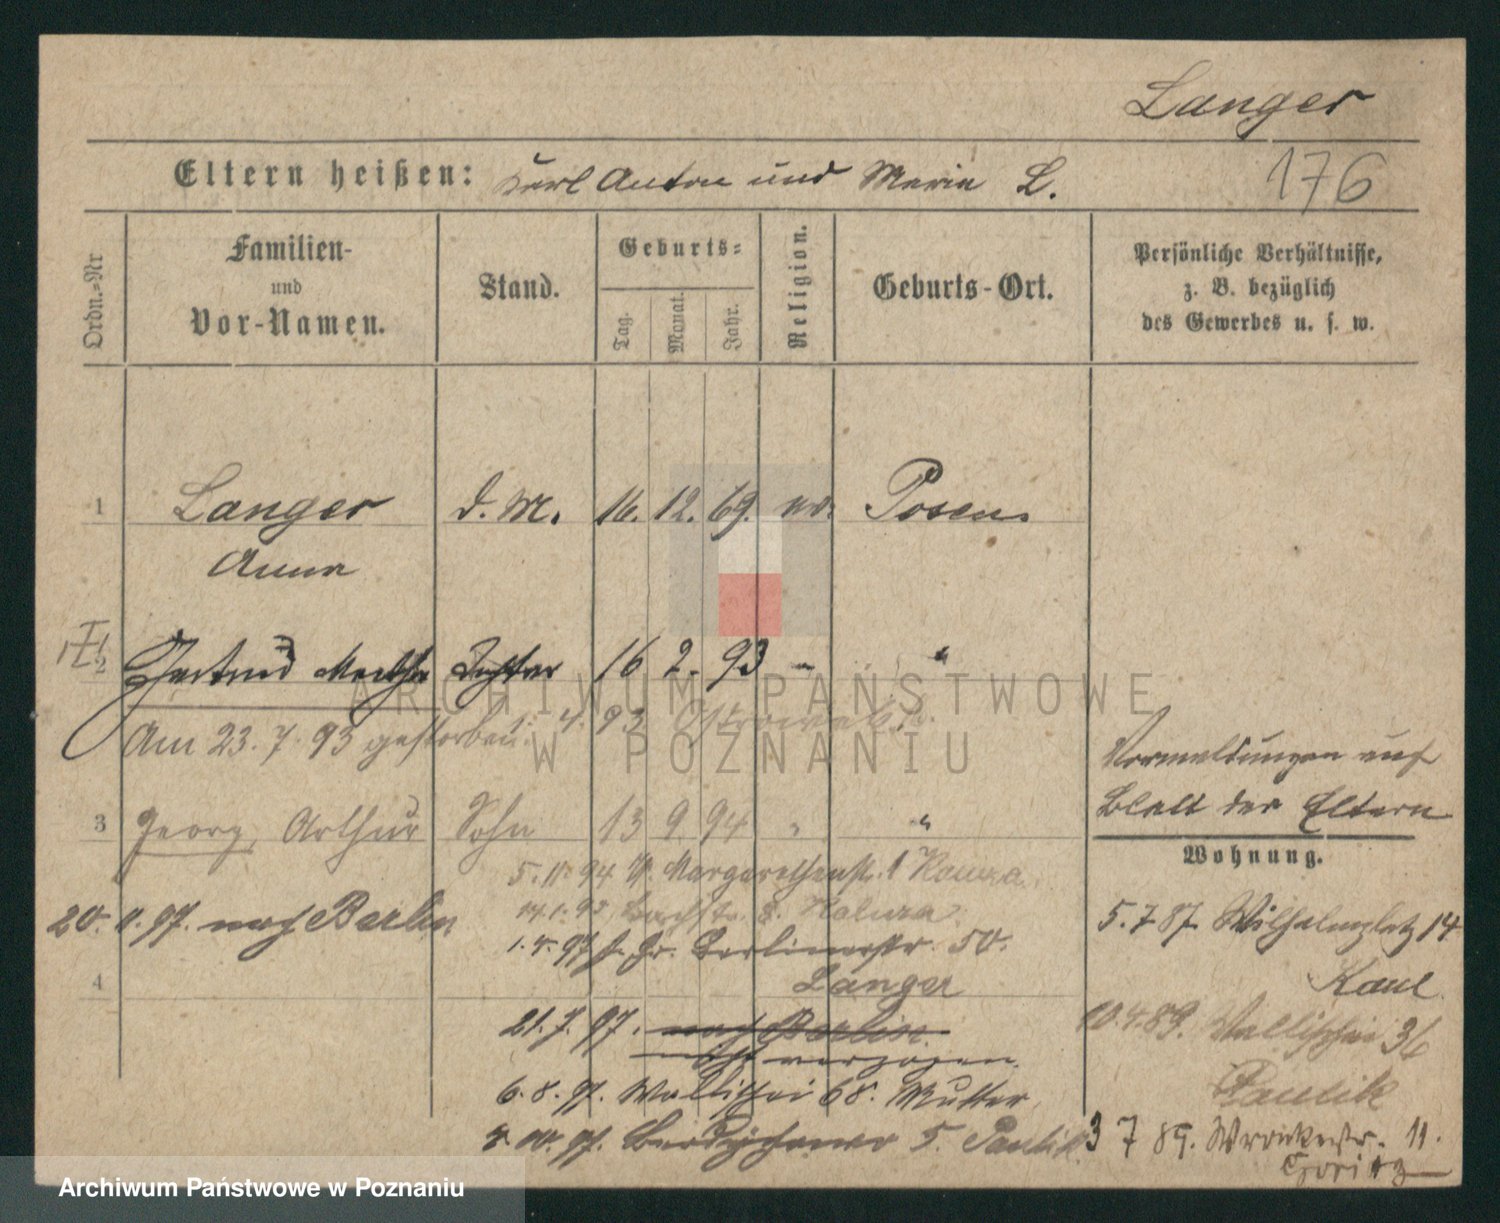 Langer
Eltern heißen: Karl Anton und Maria L.
176
Ordn.-Nr
Familien-
und
Vor-Namen.
Stand.
Geburts-
Tag.
Monat.
Jahr.
Religion.
Geburts-Ort.
Persönliche Verhältnisse,
z. B. bezüglich
des Gewerbes u. s. w.
1 Langer d. M. 16. 12. 69. Posen
Anna
Gertrud Martha Tochter 16 2. 93 "
Am 23. 7. 93 gestorben. 4. 93
Vormeldungen auf
Blatt der Eltern
3 Georg, Arthur Sohn 13 9 94 " "
Wohnung.
5. 11. 94 Margarethenstr. 1
20. 11. 97. nach Berlin
1. 4. 97 Gr. Berlinerstr. 50.
Langer
4
21. 7. 97. nach Berlin
nicht verzogen.
6. 8. 97. Wallischei 68. Mutter
10. 97. 5. Paulik
5. 7 87. Wilhelmsplatz 14
Kaul
10. 4. 89. Wallischei 36
Paulik
3 7 89. Wronkerstr. 11.
ARCHIWUM PAŃSTWOWE
W POZNANIU
Archiwum Państwowe w Poznaniu